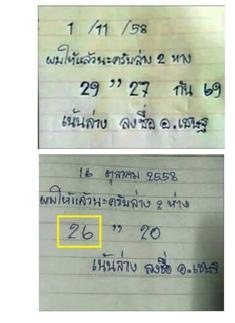 1 /11 /58
ผมให้แล้วนะครับล่าง 2 หาง
29 " 27 กัน 69
เน้นล่าง ลงชื่อ อ.เชษฐ
16 ตุลาคม 2558
ผมให้แล้วนะครับล่าง 2 ห่าง
26 " 20
เน้นล่าง ลงชื่อ อ.เชษฐ